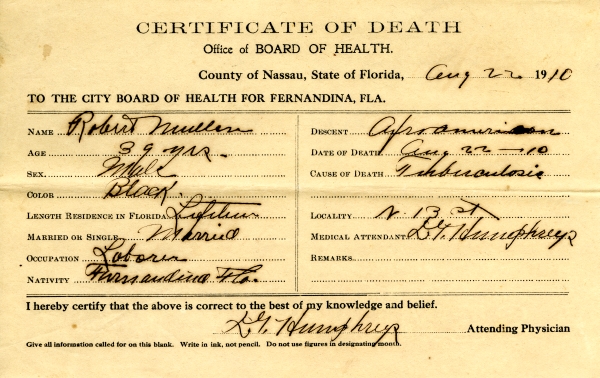 CERTIFICATE OF DEATH
Office of BOARD OF HEALTH.
County of Nassau, State of Florida, Aug 22 1910
TO THE CITY BOARD OF HEALTH FOR FERNANDINA, FLA.
NAME Robert Mullen
AGE 39 yrs.
SEX. Male
COLOR Black
LENGTH RESIDENCE IN FLORIDA Lifetime
MARRIED OR SINGLE Married
OCCUPATION Laborer
NATIVITY Fernandina Fla.
DESCENT Afroamerican
DATE OF DEATH Aug 22 - 10
CAUSE OF DEATH Tuberculosis
LOCALITY N. 13 St
MEDICAL ATTENDANT Humphreys
REMARKS
I hereby certify that the above is correct to the best of my knowledge and belief.
Humphreys Attending Physician
Give all information called for on this blank. Write in ink, not pencil. Do not use figures in designating month.